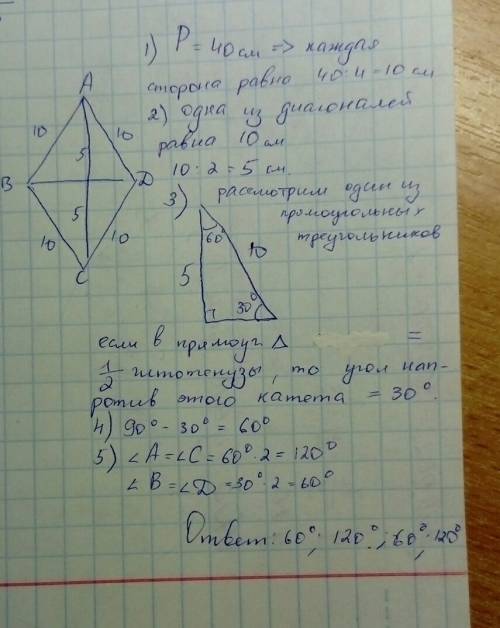 1) P = 40 см => каждая
сторона равна 40:4=10 см
2) одна из диагоналей
равна 10 см
10:2 = 5 см.
3) рассмотрим один из
прямоугольных
треугольников
A
10
10
5
B
D
5
10
10
C
60°
10
5
30°
если в прямоуг. Δ =
1/2 гипотенузы, то угол нап-
ротив этого катета = 30°.
4) 90° - 30° = 60°
5) ∠A=∠C=60°·2=120°
∠B=∠D=30°·2=60°
Ответ: 60°; 120°; 60°; 120°